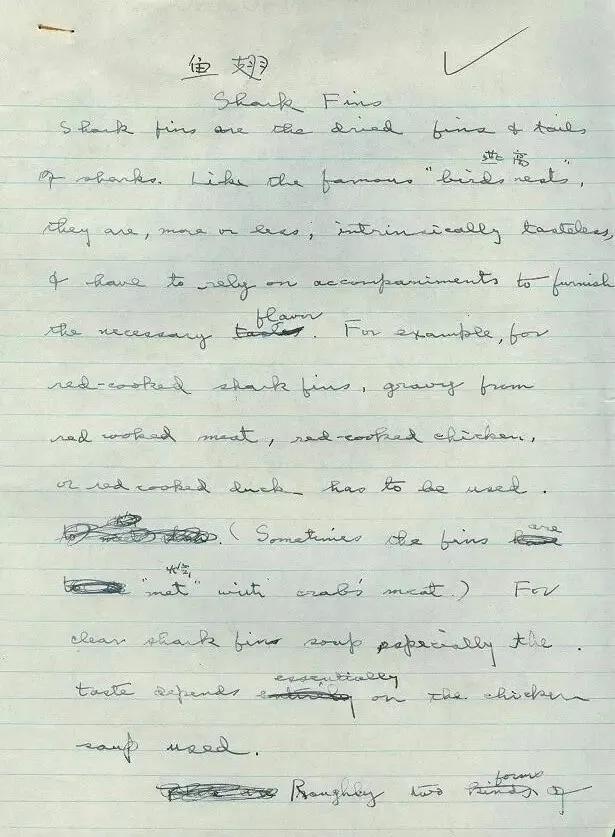 鱼翅
Shark Fins
Shark fins are the dried fins & tails
燕窩
of sharks. Like the famous "birds nests",
they are, more or less, intrinsically tasteless,
& have to rely on accompaniments to furnish
flavor
the necessary tastes. For example, for
red-cooked shark fins, gravy from
red cooked meat, red-cooked chicken,
or red cooked duck has to be used.
(Sometimes the fins are
"met" with crab's meat.) For
clear shark fins soup especially the
essentially
taste depends entirely on the chicken
soup used.
forms
Roughly two kinds of